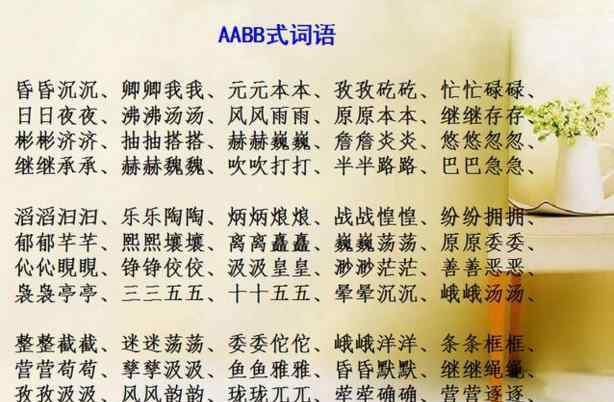 AABB式词语
昏昏沉沉、卿卿我我、元元本本、孜孜矻矻、忙忙碌碌、
日日夜夜、沸沸汤汤、风风雨雨、原原本本、继继存存、
彬彬济济、抽抽搭搭、赫赫巍巍、詹詹炎炎、悠悠忽忽、
继继承承、赫赫魏魏、吹吹打打、半半路路、巴巴急急、
滔滔汩汩、乐乐陶陶、炳炳烺烺、战战惶惶、纷纷拥拥、
郁郁芊芊、熙熙壤壤、离离矗矗、巍巍荡荡、原原委委、
伈伈睍睍、铮铮佼佼、汲汲皇皇、渺渺茫茫、善善恶恶、
袅袅亭亭、三三五五、十十五五、晕晕沉沉、峨峨汤汤、
整整截截、迷迷荡荡、委委佗佗、峨峨洋洋、条条框框、
营营苟苟、孳孳汲汲、鱼鱼雅雅、昏昏默默、继继绳绳、
孜孜汲汲、风风韵韵、珑珑兀兀、荦荦确确、营营逐逐、